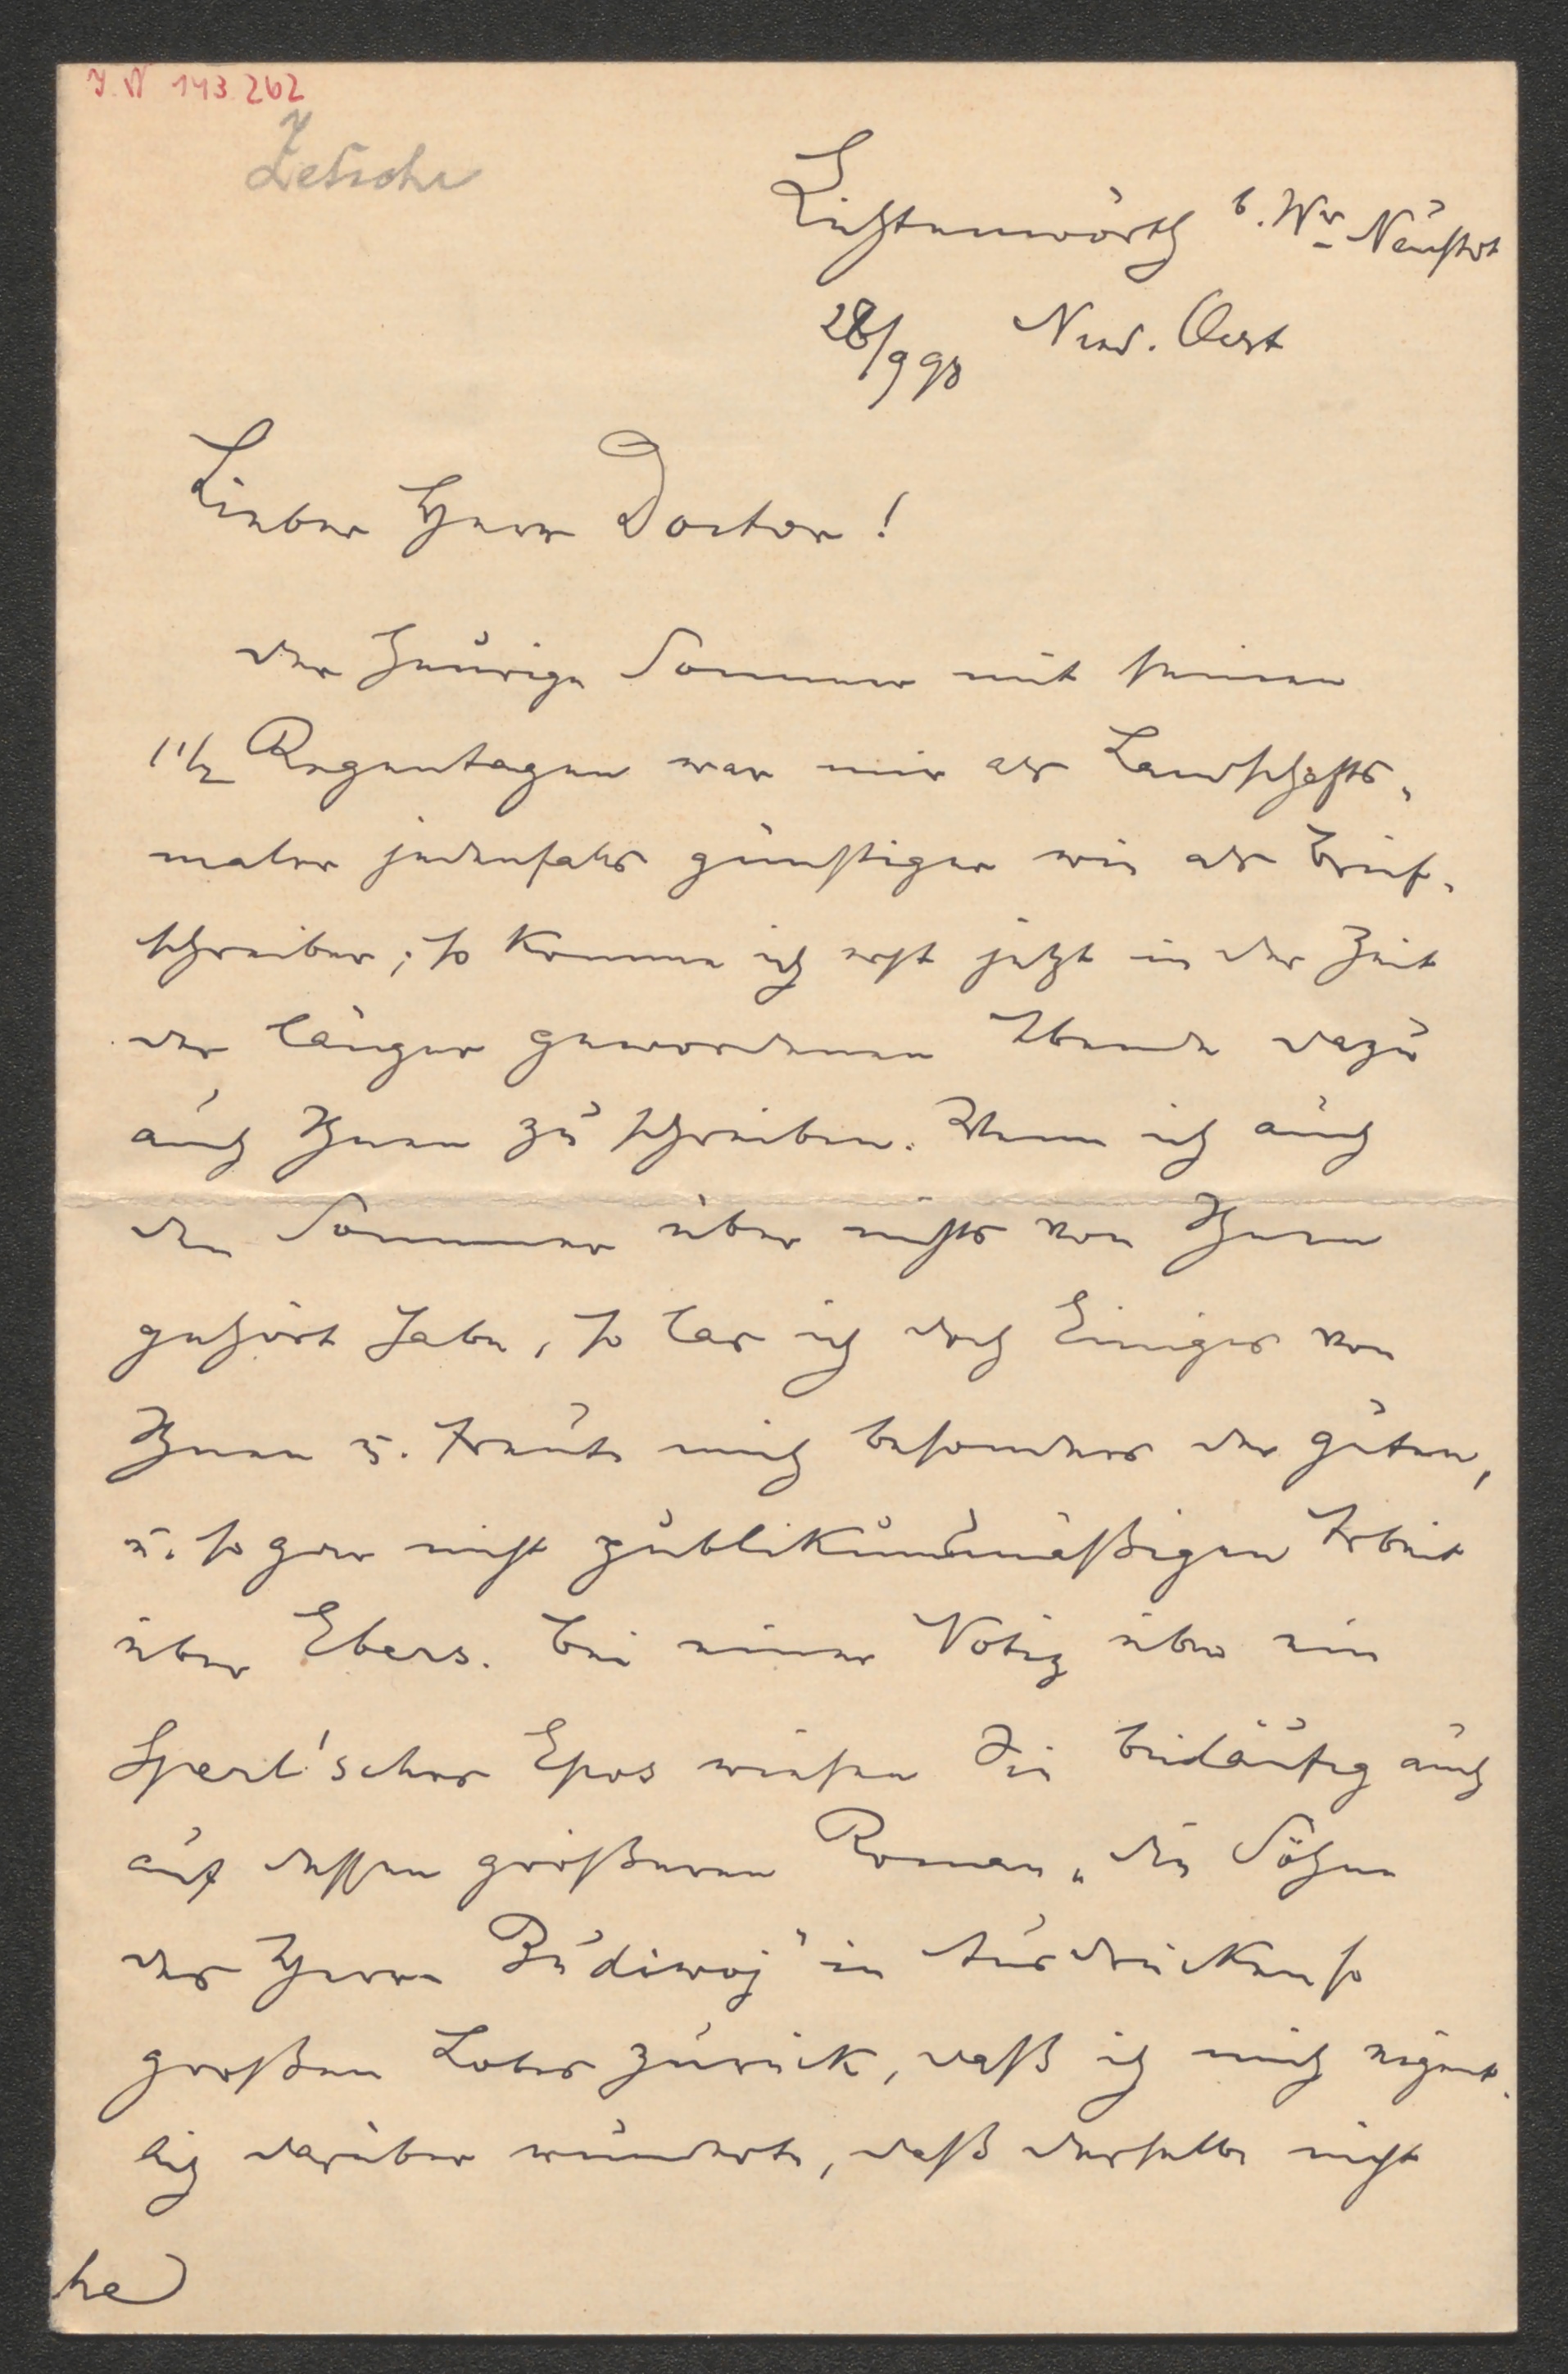 J. N 143.262
Zetsche
Lichtenwörth b. Wr Neustdt
28/9 98 Nied. Oest
Lieber Herr Doctor!
der heurige Sommer mit seinen
1 1/2 Regentagen war mir als Landschafts-
maler jedenfalls günstiger wie als Brief-
schreiber; so komme ich erst jetzt in der Zeit
der länger gewordenen Abende dazu
auch Ihnen zu schreiben. Wenn ich auch
den Sommer über nichts von Ihnen
gehört habe, so las ich doch Einiges von
Ihnen u. freute mich besonders der guten,
u. so gar nicht publikumsmäßigen Arbeit
über Ebers. Bei einer Notiz über ein
Sperl'sches Epos wiesen Sie beiläufig auch
auf dessen größeren Roman „die Söhne
des Herrn Budiwoj" in Ausdrücken so
großen Lobes zurück, daß ich mich eigent-
lich darüber wunderte, daß derselbe nicht
he